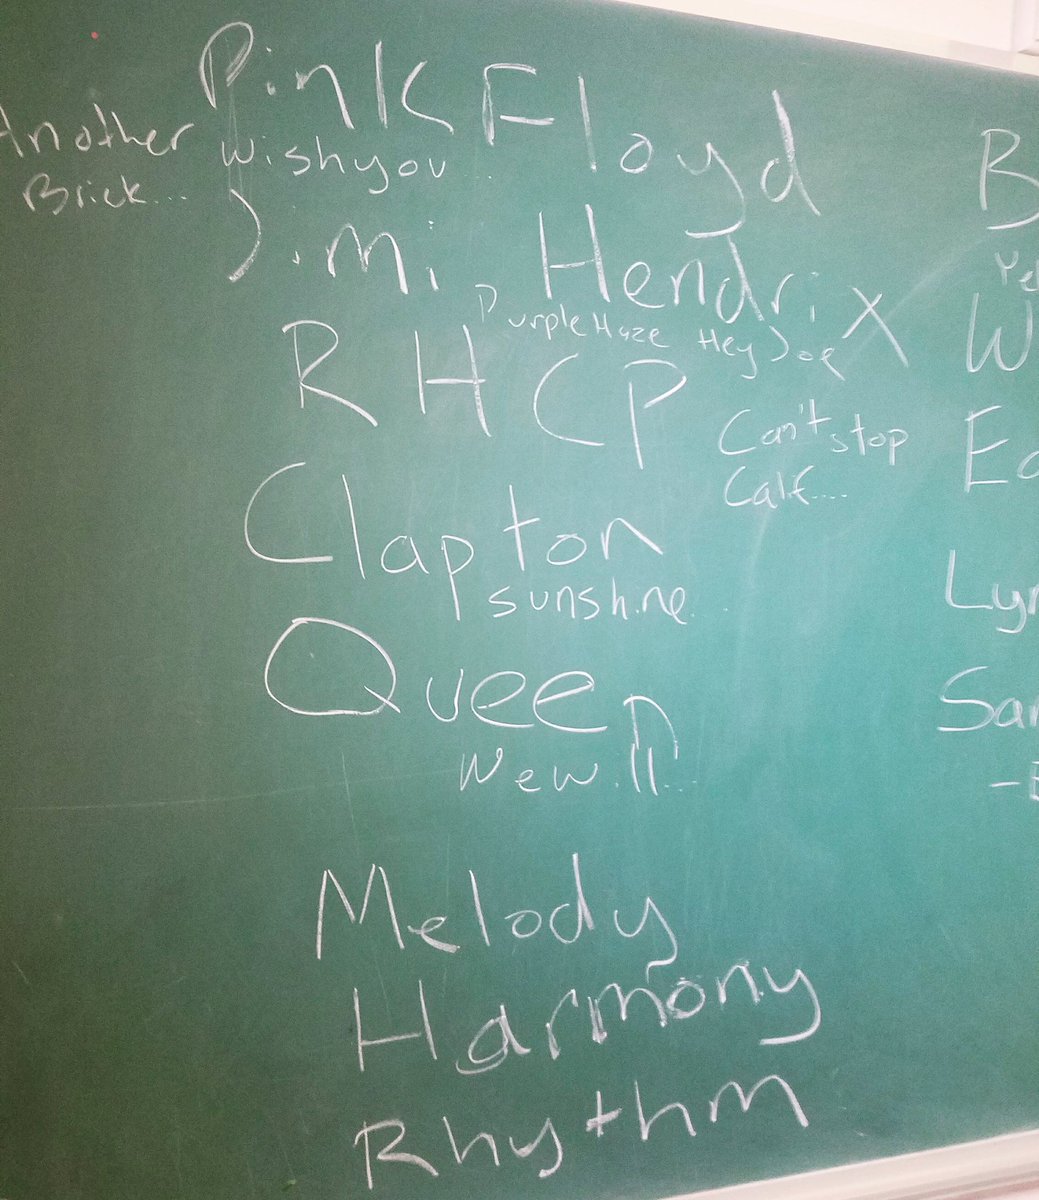 Pink Floyd
Another Wish you..
Brick...
Jimi Hendrix
Purple Haze Hey Joe
RHCP
Can't stop
Calif....
Clapton
sunshine...
Queen
We will...
Melody
Harmony
Rhythm
B
Ye
W
Ea
Lyn
San
-E